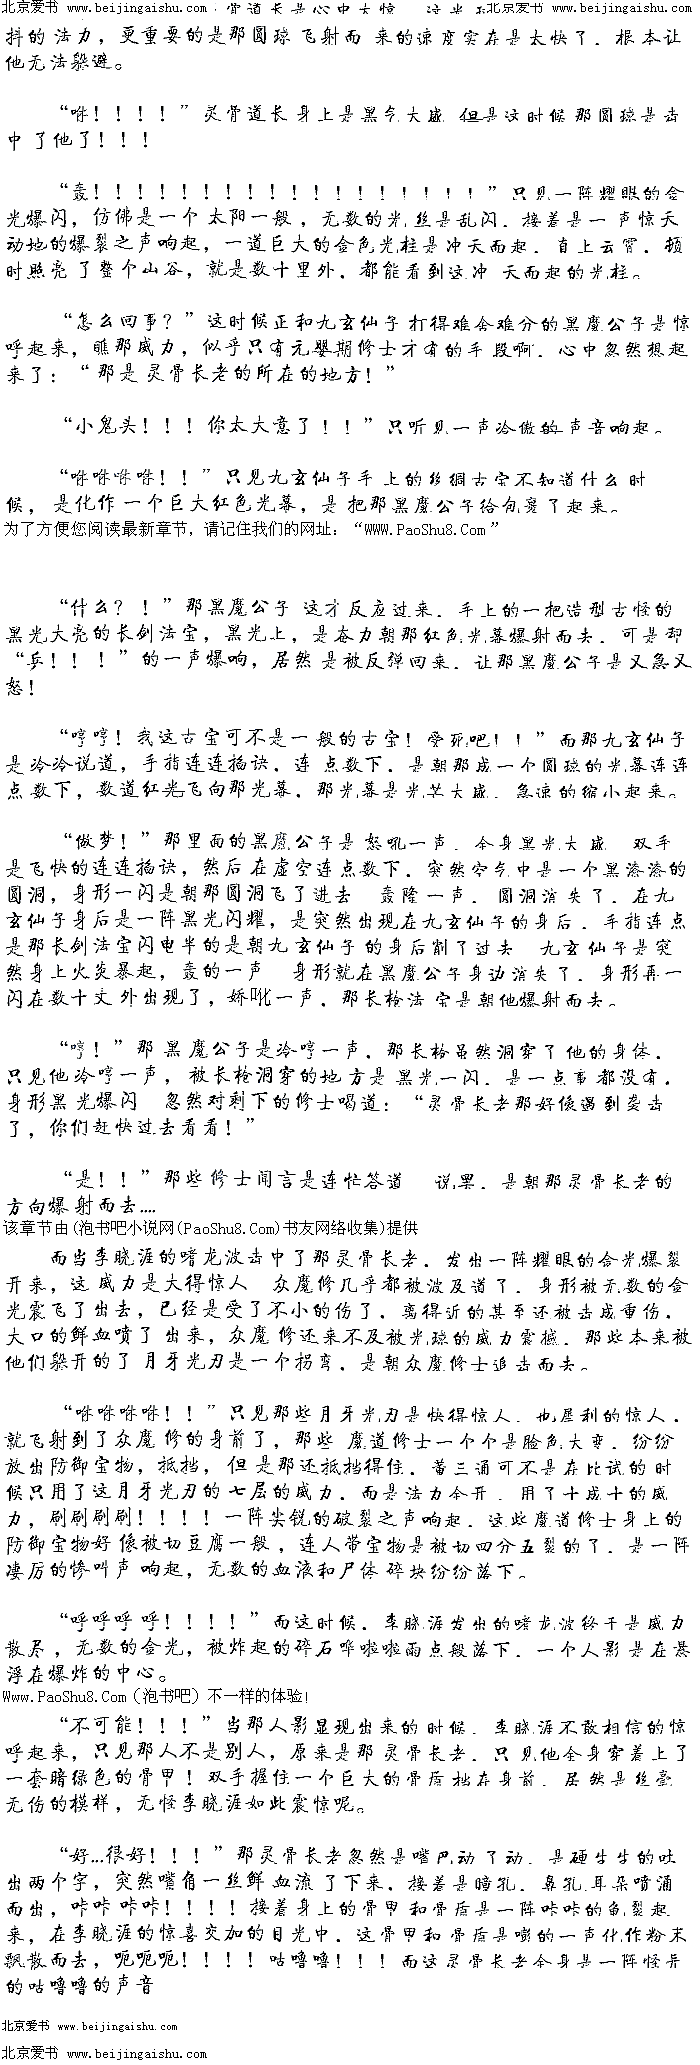 北京爱书 www.beijingaishu.com 骨道长是心中大惊 北京爱书 www.beijingaishu.com
抖的法力，更重要的是那圆球飞射而来的速度实在是太快了．根本让
他无法躲避。
“咻！！！！”灵骨道长身上是黑气大盛 但是这时候那圆球是击
中了他了！！！
“轰！！！！！！！！！！！！！！！！！！”只见一阵耀眼的金
光爆闪，仿佛是一个太阳一般，无数的光丝是乱闪．接着是一声惊天
动地的爆裂之声响起，一道巨大的金色光柱是冲天而起．直上云霄．顿
时照亮了整个山谷，就是数十里外．都能看到这冲天而起的光柱。
“怎么回事？”这时候正和九玄仙子打得难舍难分的黑魔公子是惊
呼起来，瞧那威力，似乎只有元婴期修士才有的手段啊．心中忽然想起
来了：“那是灵骨长老的所在的地方！”
“小鬼头！！！你太大意了！！！”只听见一声冷傲的声音响起。
“咻咻咻咻！！”只见九玄仙子手上的丝绸古宝不知道什么时
候，是化作一个巨大红色光幕，是把那黑魔公子给包裹了起来。
为了方便您阅读最新章节，请记住我们的网址：“WWW.PaoShu8.Com”
“什么？！”那黑魔公子这才反应过来．手上的一把造型古怪的
黑光大亮的长剑法宝，黑光上，是奋力朝那红色光幕爆射而去．可是却
“乒！！！”的一声爆响，居然是被反弹回来．让那黑魔公子是又急又
怒！
“哼哼！我这古宝可不是一般的古宝！受死吧！！”而那九玄仙子
是冷冷说道，手指连连掐诀．连点数下．是朝那成一个圆球的光幕连连
点数下，数道红光飞向那光幕．那光幕是光芒大盛．急速的缩小起来。
“做梦！”那里面的黑魔公子是怒吼一声．全身黑光大盛 双手
是飞快的连连掐诀，然后在虚空连点数下．突然空气中是一个黑漆漆的
圆洞，身形一闪是朝那圆洞飞了进去 轰隆一声．圆洞消失了．在九
玄仙子身后是一阵黑光闪耀，是突然出现在九玄仙子的身后．手指连点
是那长剑法宝闪电半的是朝九玄仙子的身后削了过去 九玄仙子是突
然身上火炎暴起，轰的一声 身形就在黑魔公子身边消失了．身形再一
闪在数十丈外出现了，娇叱一声．那长枪法宝是朝他爆射而去。
“哼！”那黑魔公子是冷哼一声．那长枪虽然洞穿了他的身体．
只见他冷哼一声，被长枪洞穿的地方是黑光一闪．是一点事都没有．
身形黑光爆闪 忽然对剩下的修士喝道：“灵骨长老那好像遇到袭击
了，你们赶快过去看看！”
“是！！”那些修士闻言是连忙答道 说罢．是朝那灵骨长老的
方向爆射而去....
该章节由(泡书吧小说网(PaoShu8.Com)书友网络收集)提供
而当李晓涯的嗜龙波击中了那灵骨长老．发出一阵耀眼的金光爆裂
开来，这威力是大得惊人 众魔修几乎都被波及道了．身形被无数的金
光震飞了出去，已经是受了不小的伤了．离得近的甚至还被击成重伤．
大口的鲜血喷了出来，众魔修还来不及被光球的威力震撼．那些本来被
他们躲开的了月牙光刃是一个拐弯．是朝众魔修士追击而去。
“咻咻咻咻！！”只见那些月牙光刃是快得惊人．也犀利的惊人．
就飞射到了众魔修的身前了，那些魔道修士一个个是脸色大变．纷纷
放出防御宝物，抵挡，但是那还抵挡得住．黄三涌可不是在比试的时
候只用了这月牙光刃的七层的威力．而是法力全开．用了十成十的威
力，刷刷刷刷！！！！一阵尖锐的破裂之声响起．这些魔道修士身上的
防御宝物好像被切豆腐一般，连人带宝物是被切四分五裂的了．是一阵
凄厉的惨叫声响起，无数的血液和尸体碎块纷纷落下。
“呼呼呼呼！！！！”而这时候．李晓涯发出的嗜龙波终于是威力
散尽，无数的金光，被炸起的碎石哗啦啦雨点般落下．一个人影是在悬
浮在爆炸的中心。
Www.PaoShu8.Com（泡书吧）不一样的体验!
“不可能！！！”当那人影显现出来的时候．李晓涯不敢相信的惊
呼起来，只见那人不是别人，原来是那灵骨长老．只见他全身穿着上了
一套暗绿色的骨甲！双手握住一个巨大的骨盾挡在身前．居然是丝毫
无伤的模样，无怪李晓涯如此震惊呢。
“好...很好！！！”那灵骨长老忽然是嘴巴动了动．是硬生生的吐
出两个字，突然嘴角一丝鲜血流了下来．接着是瞳孔．鼻孔．耳朵喷涌
而出，咔咔咔咔！！！！接着身上的骨甲和骨盾是一阵咔咔的龟裂起
来，在李晓涯的惊喜交加的目光中．这骨甲和骨盾是嘭的一声化作粉末
飘散而去，呃呃呃！！！！咕噜噜！！！而这灵骨长老全身是一阵怪异
的咕噜噜的声音
北京爱书 www.beijingaishu.com
北京爱书 www.beijingaishu.com